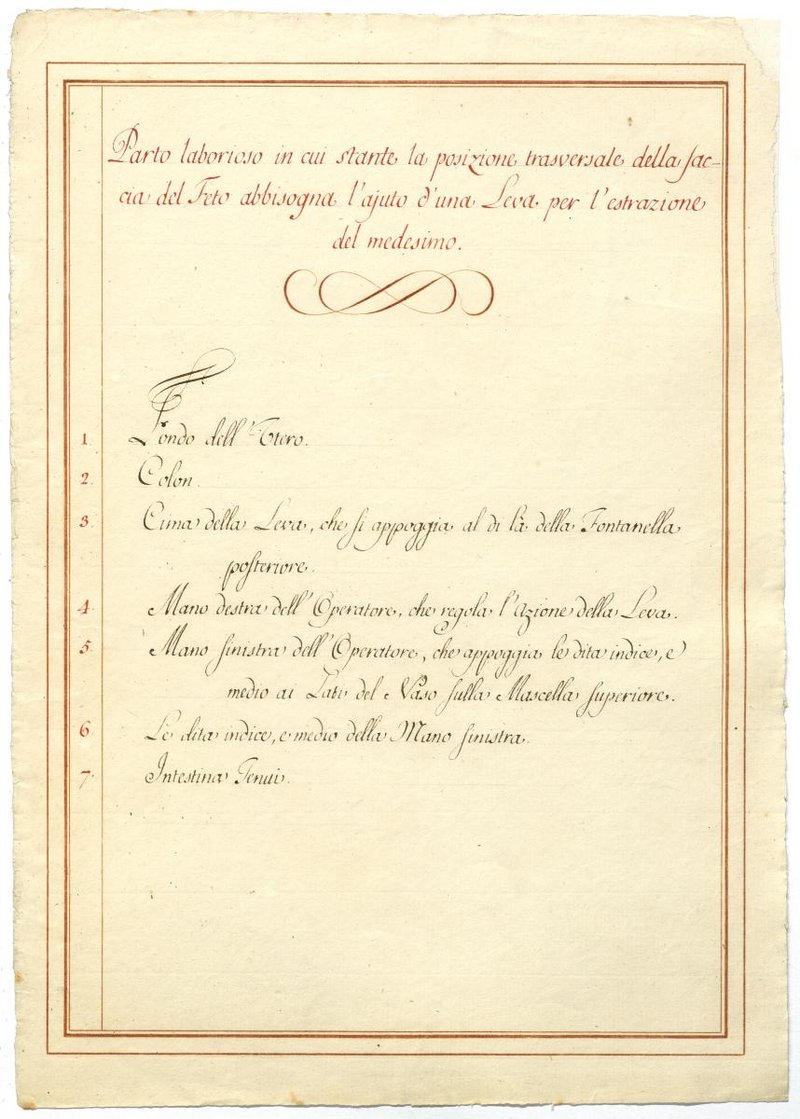 Parto laborioso in cui stante la posizione trasversale della fac-
cia del Feto abbisogna l'ajuto d'una Leva per l'estrazione
del medesimo.
1. Fondo dell'Utero.
2. Colon.
3. Cima della Leva, che si appoggia al di là della Fontanella
posteriore.
4. Mano destra dell'Operatore, che regola l'Azione della Leva.
5. Mano sinistra dell'Operatore, che appoggia le dita indice, e
medio ai Lati del Naso sulla Mascella superiore.
6 Le dita indice, e medio della Mano sinistra.
7. Intestina Tenui.